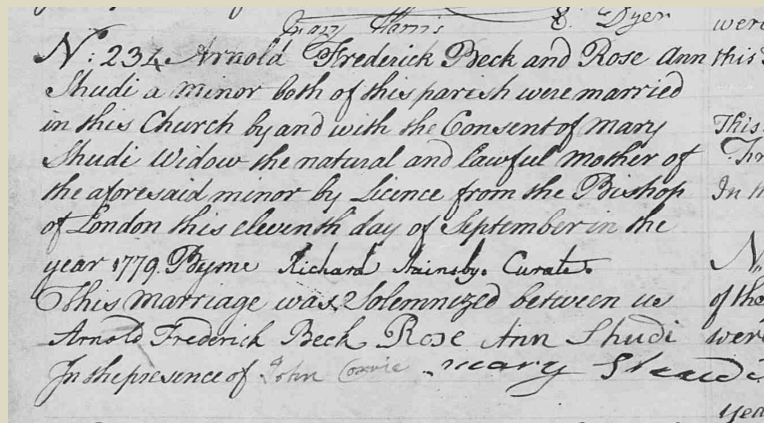 Mary Harris E. Dyer
N: 234 Arnold Frederick Beck and Rose Ann
Shudi a minor both of this parish were married
in this Church by and with the Consent of Mary
Shudi Widow the natural and lawful Mother of
the aforesaid minor by Licence from the Bishop
of London this eleventh day of September in the
year 1779. Byme Richard Stainsby. Curate.
This Marriage was Solemnized between us
Arnold Frederick Beck Rose Ann Shudi
In the presence of John Mary Shudi
were
this
This
In
N
of the
were
Year